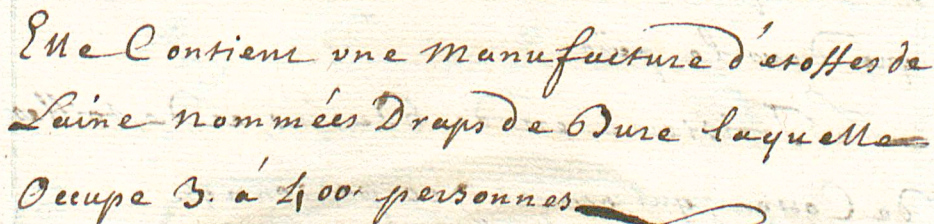 Elle Contient vne manufacture d'étoffes de
Laine nommées Draps de Bure laquelle
Occupe 3. à 400. personnes